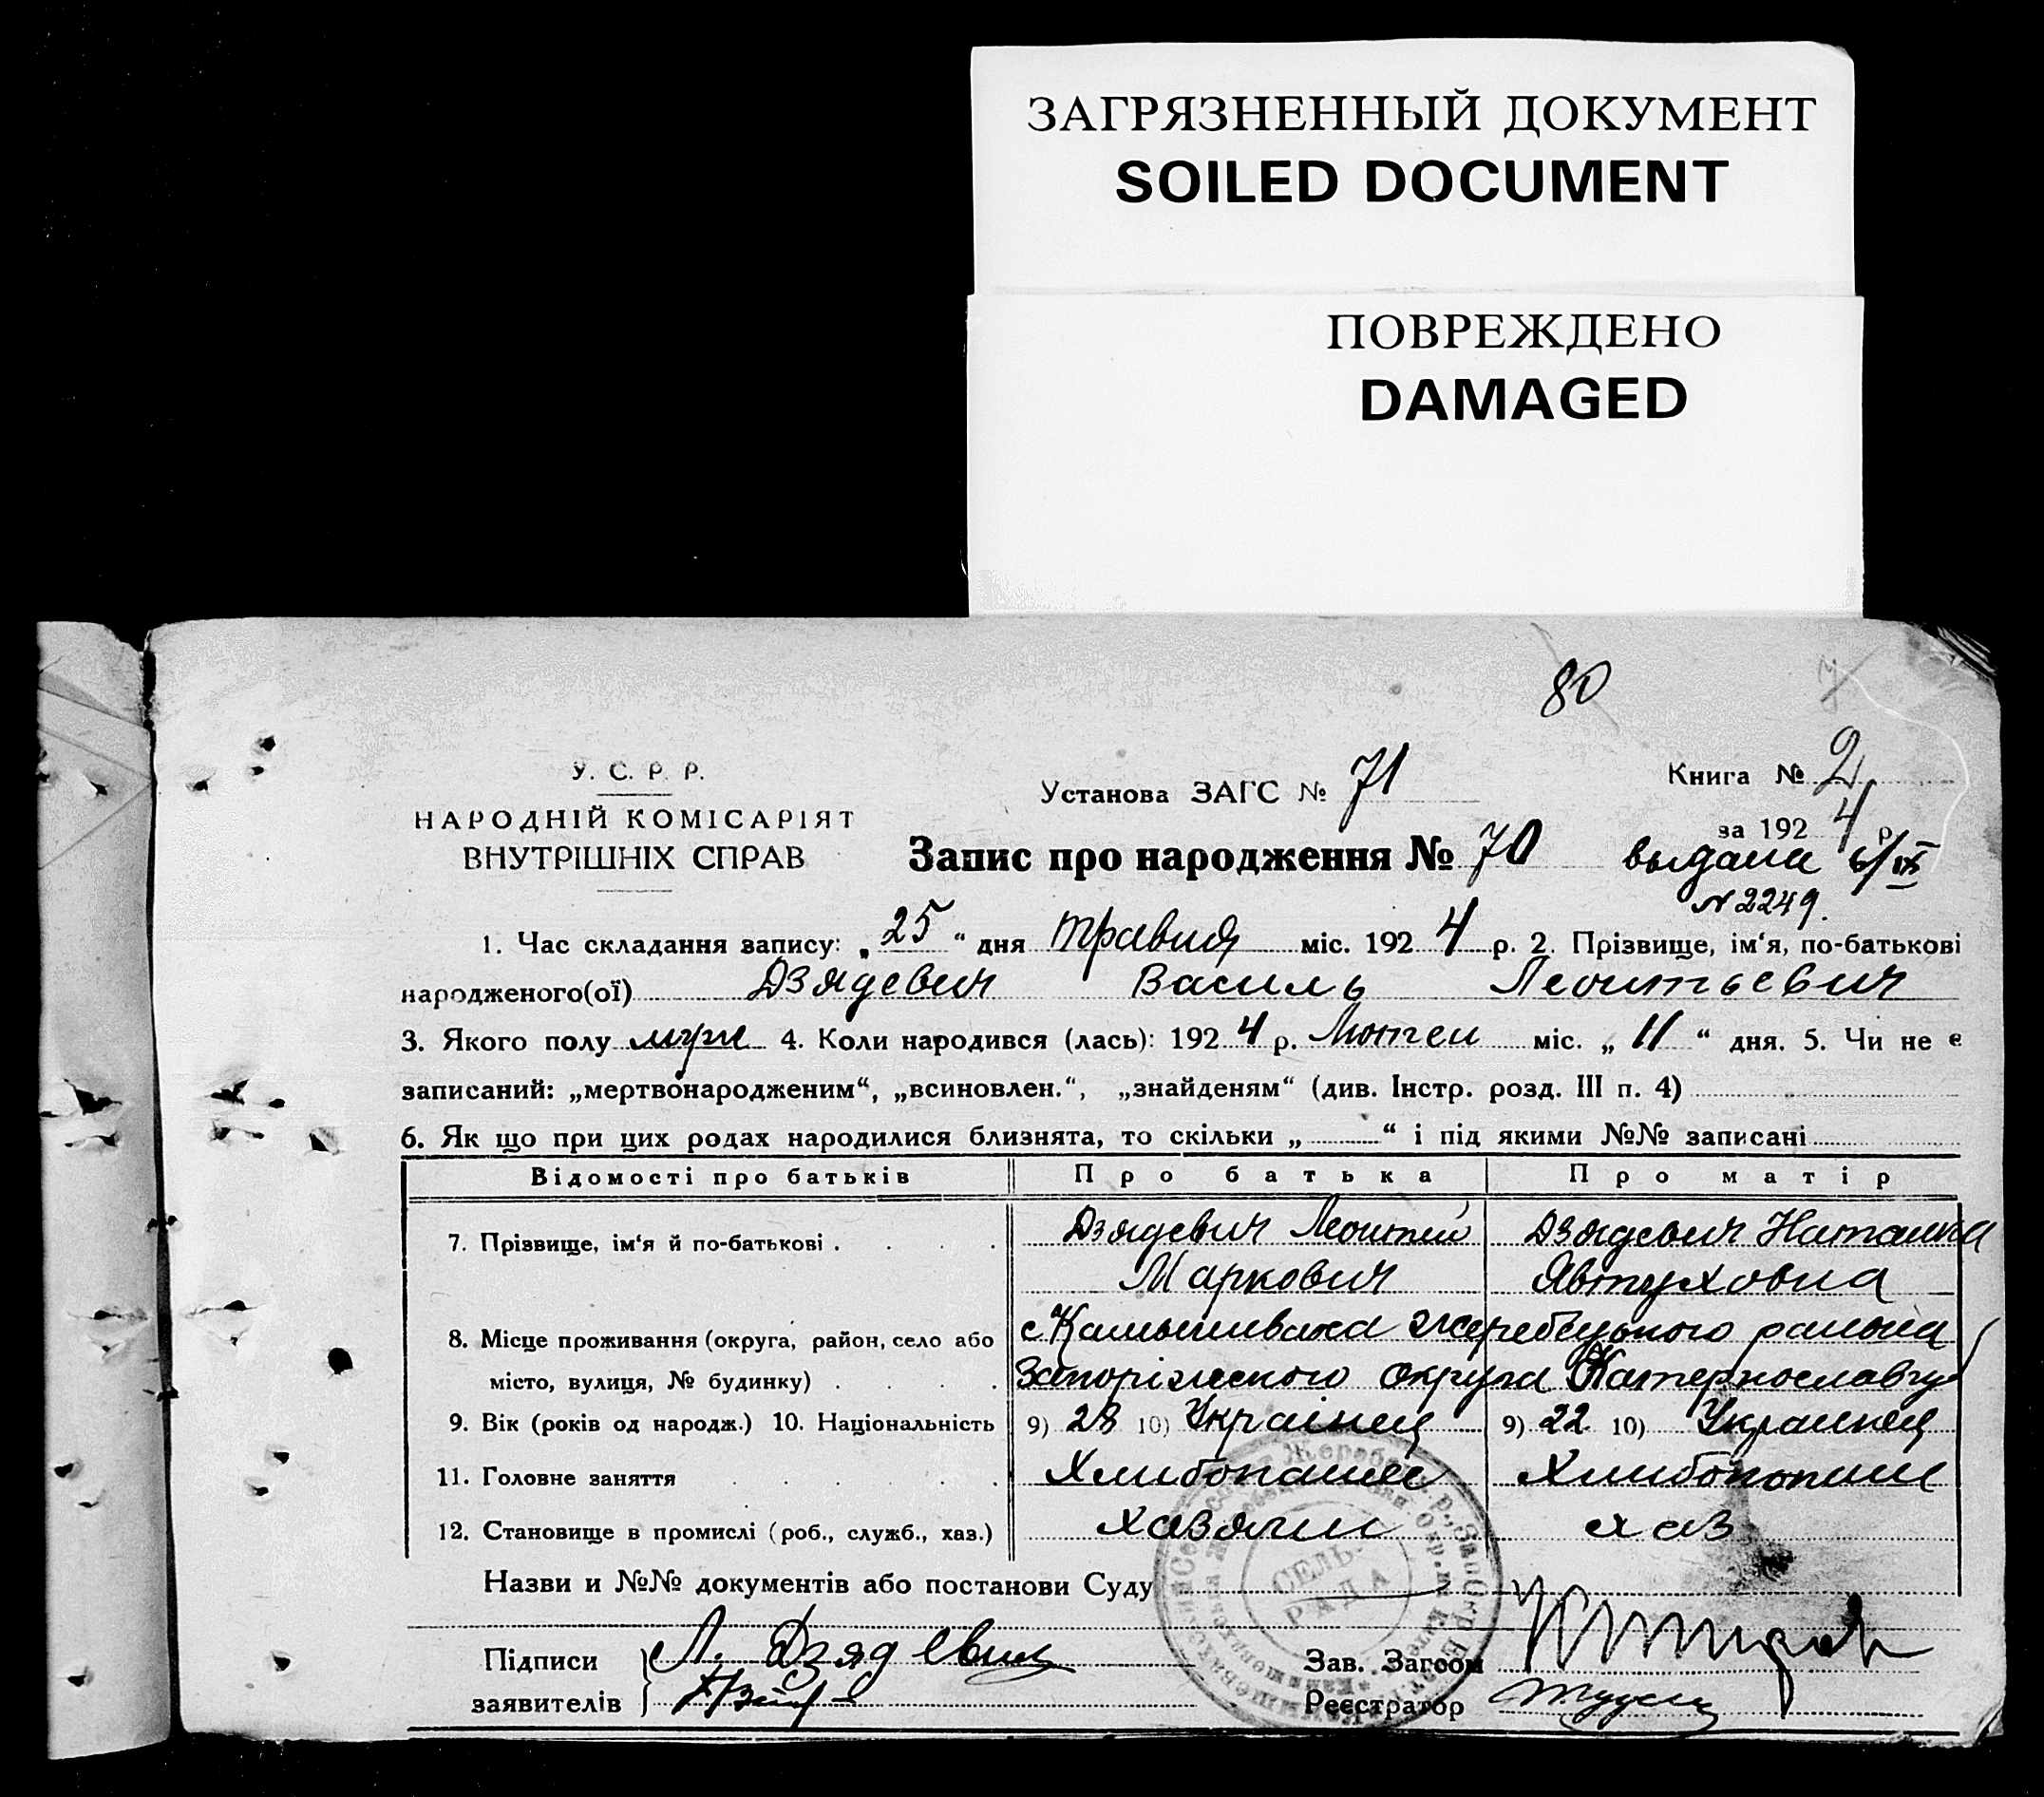 ЗАГРЯЗНЕННЫЙ ДОКУМЕНТ
SOILED DOCUMENT
ПОВРЕЖДЕНО
DAMAGED
80
У. С. Р. Р.
НАРОДНІЙ КОМІСАРІЯТ
ВНУТРІШНІХ СПРАВ
Установа ЗАГС № 71
Книга № 2
за 192 4 р.
Запис про народження № 70
выдана 6/IX
N 2249.
1. Час складання запису: „ 25 “ дня травня міс. 192 4 р. 2. Прізвище, ім‘я, по-батькові
народженого(ої) Дзядевич Василь Леонтьевич
3. Якого полу муж 4. Коли народився (лась): 192 4 р. Лютен міс. „ 11 “ дня. 5. Чи не є
записаний: „мертвонародженим“, „всиновлен.“, „знайденям“ (див. Інстр. розд. III п. 4)
6. Як що при цих родах народилися близнята, то скільки „ “ і під якими №№ записані
Відомості про батьків Про батька Про матір
7. Прізвище, ім‘я й по-батькові . . . . Дзядевич Леонтий Дзядевич Наталка
Маркович Явтуховна
8. Місце проживання (округа, район, село або с Камышиваха жеребецького района
місто, вулиця, № будинку) . . . . Запоріжского округа
9. Вік (років од народж.) 10. Національність 9) 28 10) Українец 9) 22 10) Украинец
11. Головне заняття . . . . . Хлибопашес Хлибопаше
12. Становище в промислі (роб., служб., хаз.) хазяин хаз
Назви и №№ документів або постанови Суду
СЕЛЬ-
РАДА
Підписи Л. Дзядевич
заявителів
Зав. Загсом
Реєстратор